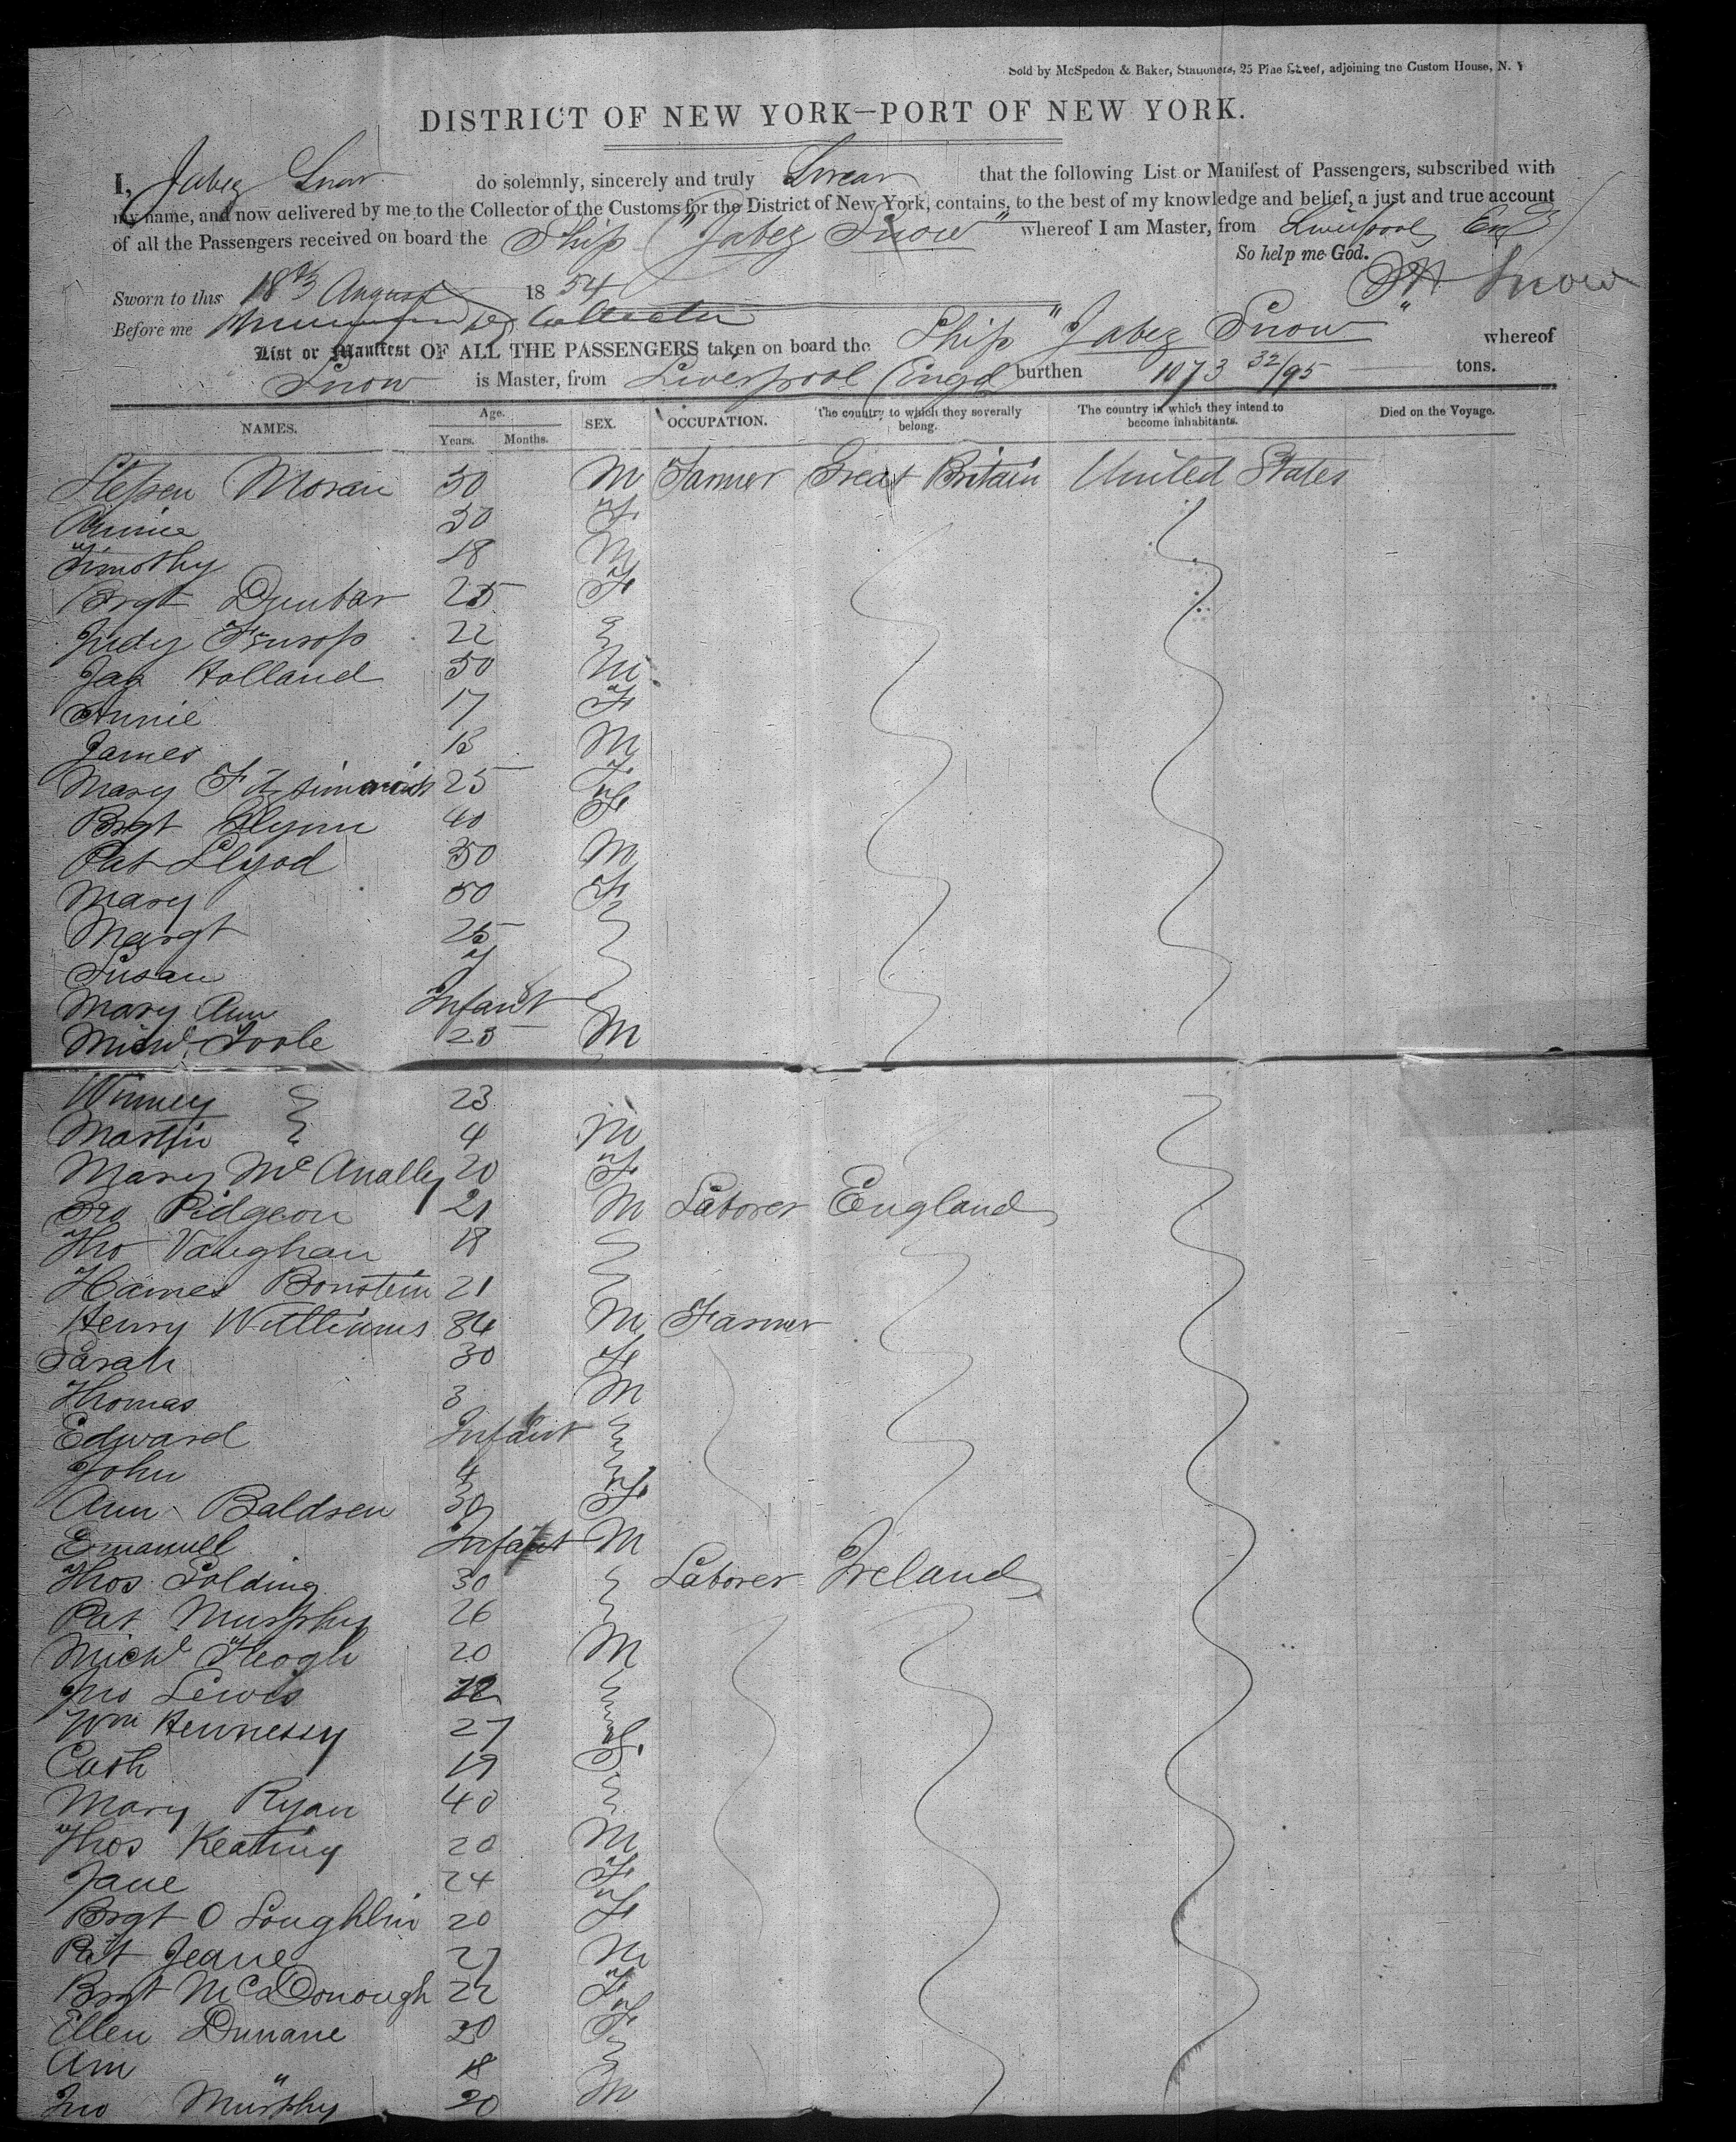 Sold by McSpedon & Baker, Stationers, 25 Pine Street, adjoining the Custom House, N. Y
DISTRICT OF NEW YORK—PORT OF NEW YORK.
I, Jabez Snow do solemnly, sincerely and truly Swear that the following List or Manifest of Passengers, subscribed with
my name, and now delivered by me to the Collector of the Customs for the District of New York, contains, to the best of my knowledge and belief, a just and true account
of all the Passengers received on board the Ship "Jabez Snow" whereof I am Master, from Liverpool, Eng
So help me God.
Sworn to this 18th August 1854
Snow
Before me Collector
List or Manifest OF ALL THE PASSENGERS taken on board the Ship "Jabez Snow" whereof
Snow is Master, from Liverpool Engd burthen 1073 32/95 tons.
NAMES. Age. Years. Months. SEX. OCCUPATION. The country to which they severally belong. The country in which they intend to become inhabitants. Died on the Voyage.
Stephen Moran 30 M Farmer Great Britain United States
Annie 30 F
Timothy 18 M
Brgt Dunbar 25 F
Judy 22
Jas Holland 50 M
Annie 17 F
James 13 M
Mary Fitzsimmons 25 F
Brgt Glynn 40 F
Pat Llyod 30 M
Mary 50 F
Margt 25
Susan
Mary Ann Infant
Michl Toole 25 M
Winney 23
Martin 4 M
Mary McAnally 20 F
Geo Pidgeon 21 M Laborer England
Tho Vaughan 18
James Bonstein 21
Henry Williams 34 M Farmer
Sarah 30 F
Thomas 3 M
Edward Infant
John 4
Ann Baldsen 30 F
Emanuell Infant M
Thos Golding 30 Laborer Ireland
Pat Murphy 26
Michl Keogh 20 M
Jno Lewis 22
Wm Hennessy 27
Cath 19 F
Mary Ryan 40
Thos Keating 20 M
Jane 24 F
Brgt O Loughlin 20 F
Pat Jeane 27 M
Brgt McDonough 22 F
Ellen Dunane 20 F
Ann " 18
Jno Murphy 20 M